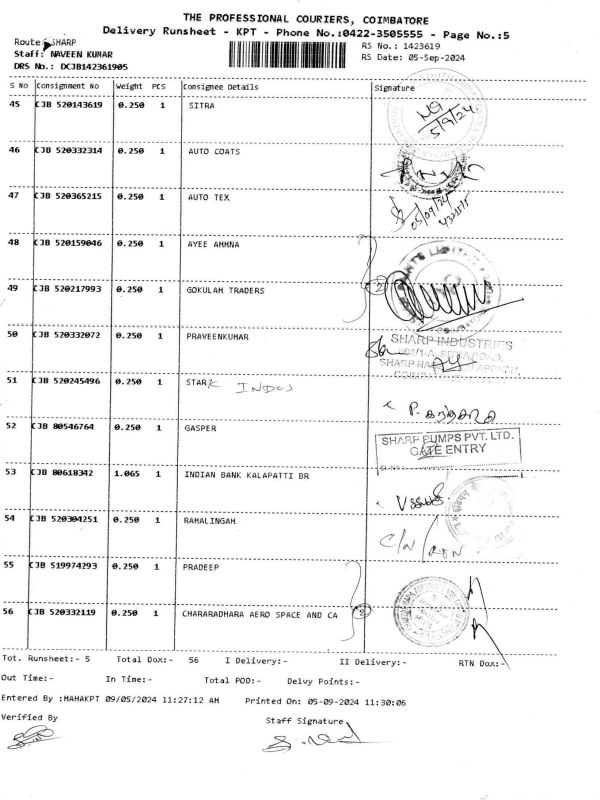 THE PROFESSIONAL COURIERS, COIMBATORE
Delivery Runsheet - KPT - Phone No.:0422-3505555 - Page No.:5
Route: SHARP
RS No.: 1423619
Staff: NAVEEN KUMAR
RS Date: 05-Sep-2024
DRS No.: DCJB142361905
S No Consignment No Weight PCS Consignee Details Signature
45 CJB 520143619 0.250 1 SITRA
5/9/24
46 CJB 520332314 0.250 1 AUTO COATS
47 CJB 520365215 0.250 1 AUTO TEX
05/09/24
48 CJB 520159046 0.250 1 AYEE AMMNA
49 CJB 520217993 0.250 1 GOKULAM TRADERS 2
50 CJB 520332072 0.250 1 PRAVEENKUMAR
SHARP INDUSTRIES
51 CJB 520245496 0.250 1 STAR INDUS
52 CJB 80546764 0.250 1 GASPER
SHARP PUMPS PVT. LTD.
GATE ENTRY
53 CJB 80618342 1.065 1 INDIAN BANK KALAPATTI BR
54 CJB 520304251 0.250 1 RAMALINGAM
C/N/RTN
55 CJB 519974293 0.250 1 PRADEEP
56 CJB 520332119 0.250 1 CHARARADHARA AERO SPACE AND CA 2
Tot. Runsheet:- 5 Total Dox:- 56 I Delivery:- II Delivery:- RTN Dox:-
Out Time:- In Time:- Total POD:- Delvy Points:-
Entered By :MAHAKPT 09/05/2024 11:27:12 AM Printed On: 05-09-2024 11:30:06
Verified By Staff Signature